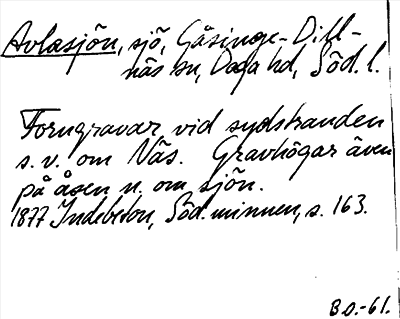 Avlasjön, sjö, Gåsinge-Dill-
näs sn, Daga hd, Söd. l.
Forngravar vid sydstranden
s. v. om Näs. Gravhögar även
på åsen n. om sjön.
1877 Indebetou, Söd. minnen, s. 163.
B.O.-61.